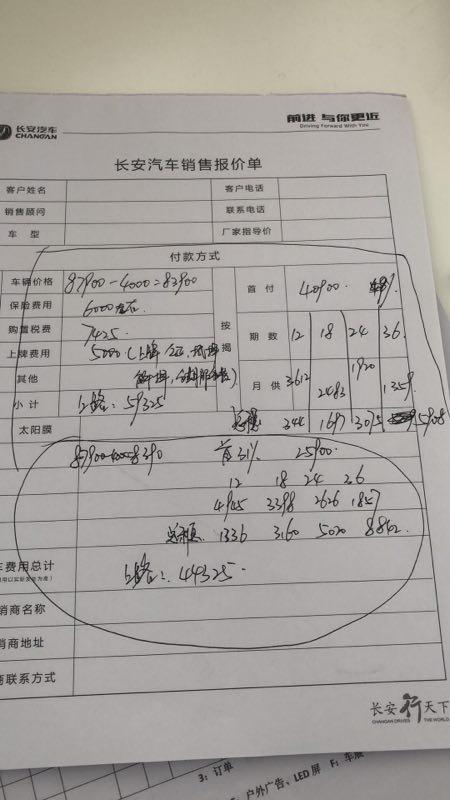 长安汽车
CHANGAN
前进 与你更近
Driving Forward With You
长安汽车销售报价单
客户姓名 客户电话
销售顾问 联系电话
车 型 厂家指导价
付款方式
车辆价格 87900-4000=83900 首 付 40900.
保险费用 6000左右
购置税费 7425 按揭 期 数 12 18 24 36
上牌费用 5000
其他 月 供 3612 2483 1920 1359
小 计 上路: 59325
太阳膜 344 1697 3075 5908
首31% 25900
12 18 24 36
4945 3398 2626 1857
总利息 1336 3160 5020 8842
车费用总计
上路: 44325
销商名称
销商地址
商联系方式
长安行天下
CHANGAN DRIVES THE WORLD
3: 订单
户外广告、LED屏 F: 车展